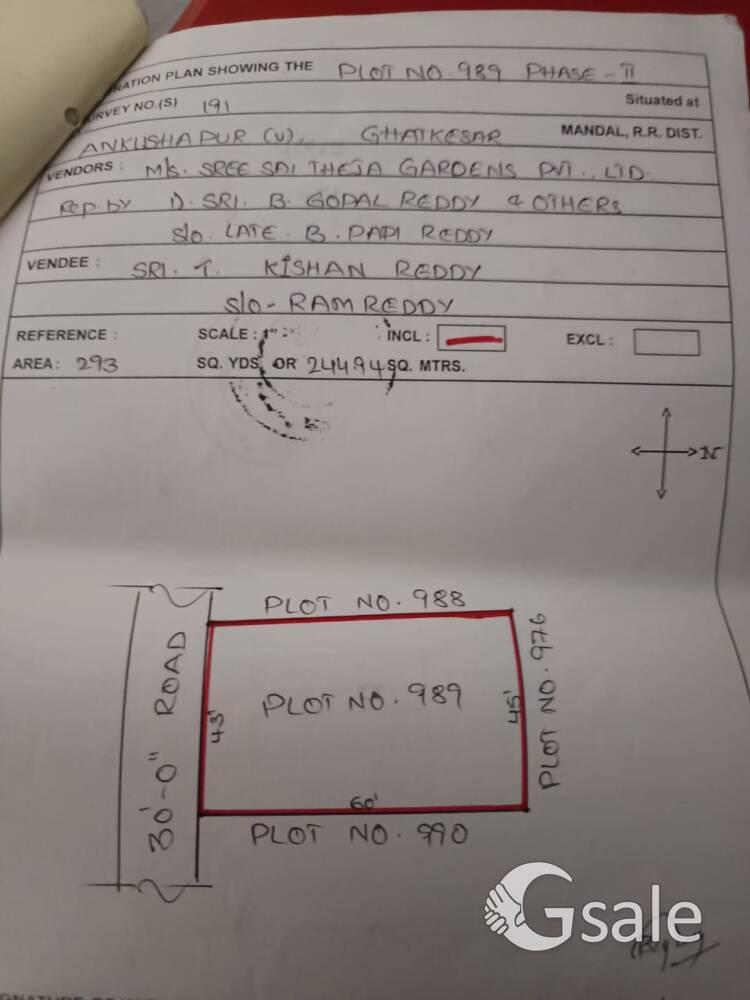 RATION PLAN SHOWING THE PLOT NO. 989 PHASE - II
URVEY NO.(S) 191 Situated at
ANKUSHAPUR (V), GHATKESAR MANDAL, R.R. DIST.
VENDORS : M/s. SREE SAI THEJA GARDENS PVT., LTD.
Rep. by 1). SRI. B. GOPAL REDDY & OTHERS
S/o. LATE. B. PAPI REDDY
VENDEE : SRI. T. KISHAN REDDY
S/o - RAM REDDY
REFERENCE : SCALE : 1" = INCL : EXCL :
AREA : 293 SQ. YDS. OR 244.94 SQ. MTRS.
N
PLOT NO. 988
30'-0" ROAD
43'
PLOT NO. 989
45'
PLOT NO. 976
60'
PLOT NO. 990
Gsale